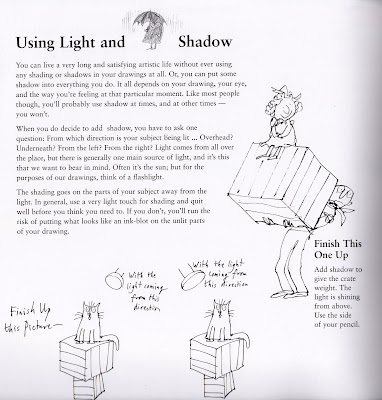 Using Light and Shadow
You can live a very long and satisfying artistic life without ever using
any shading or shadows in your drawings at all. Or, you can put some
shadow into everything you do. It all depends on your drawing, your eye,
and the way you're feeling at that particular moment. Like most people
though, you'll probably use shadow at times, and at other times —
you won't.
When you do decide to add shadow, you have to ask one
question: From which direction is your subject being lit ... Overhead?
Underneath? From the left? From the right? Light comes from all over
the place, but there is generally one main source of light, and it's this
that we want to bear in mind. Often it's the sun; but for the
purposes of our drawings, think of a flashlight.
The shading goes on the parts of your subject away from the light.
In general, use a very light touch for shading and quit
well before you think you need to. If you don't, you'll run the
risk of putting what looks like an ink-blot on the unlit parts
of your drawing.
Finish This
One Up
Add shadow to
give the crate
weight. The
light is shining
from above.
Use the side
of your pencil.
Finish Up
this Picture
With the
light coming
from this
direction
With the light
coming from
this direction